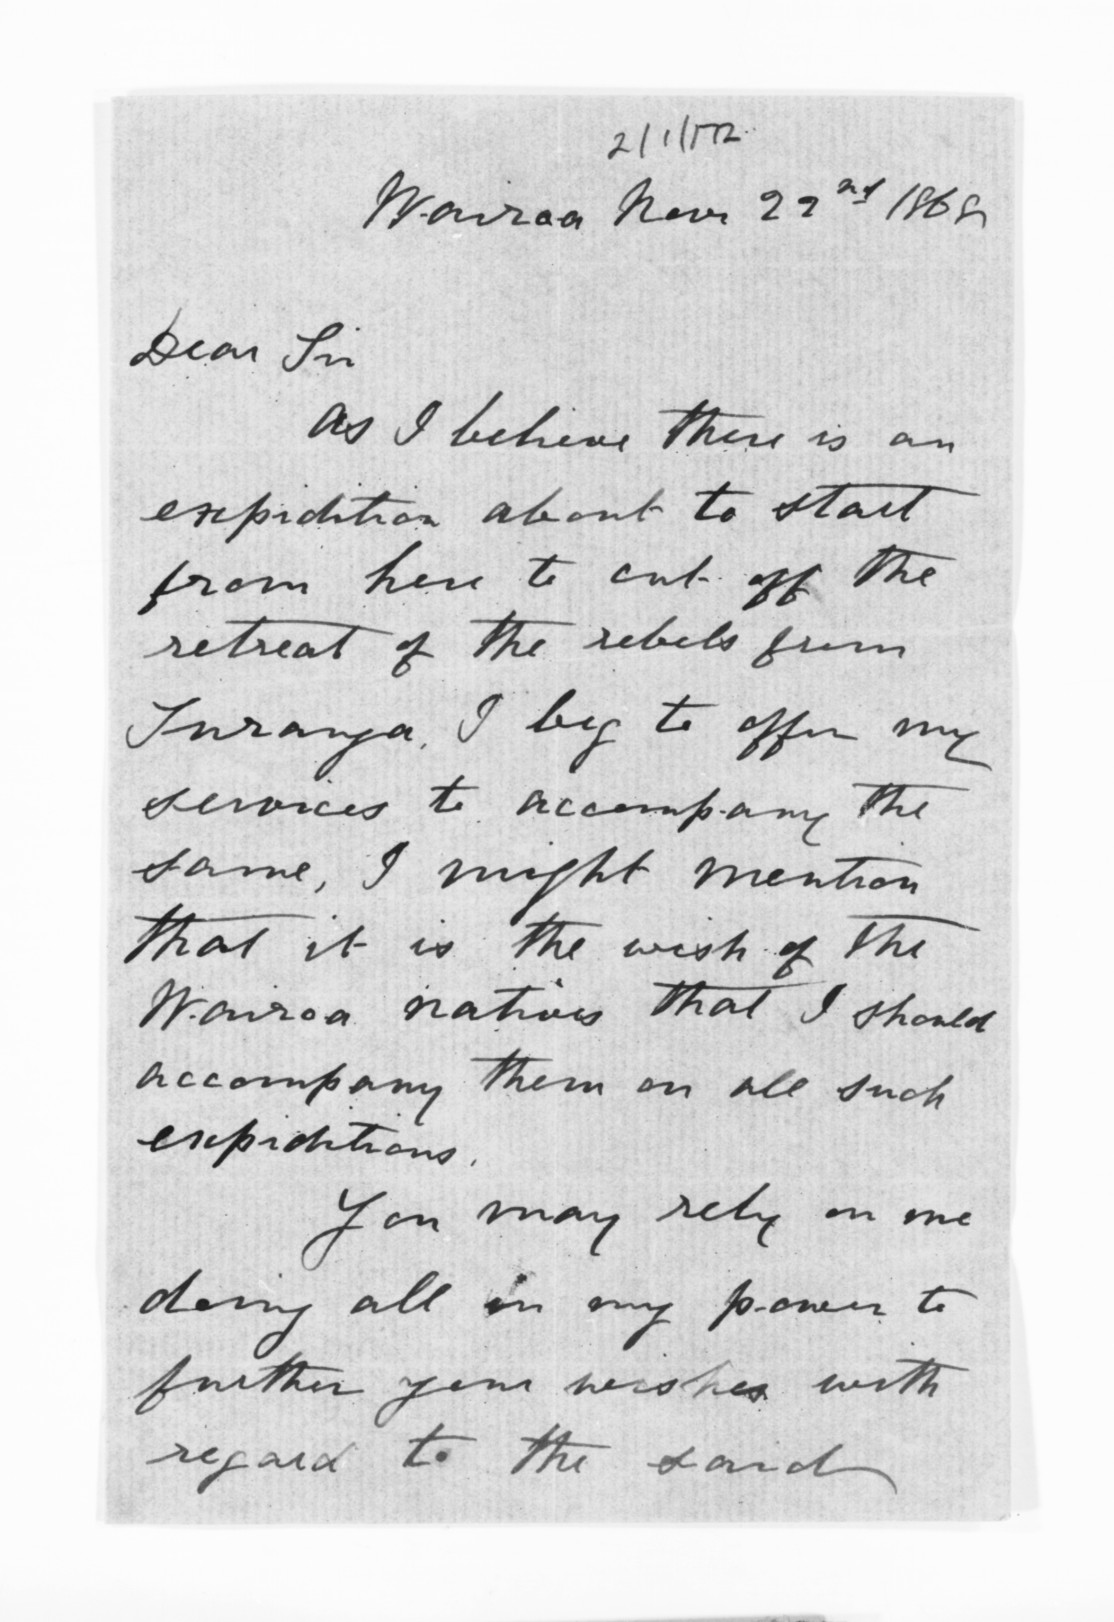 Wairoa Novr 22nd 1868
Dear Sir
As I believe there is an
expidition about to start
from here to cut off the
retreat of the rebels from
Turanga, I beg to offer my
services to accompany the
same, I might mention
that it is the wish of the
Wairoa natives that I should
accompany them on all such
expiditions.
You may rely on me
doing all in my power to
further your wishes with
regard to the said